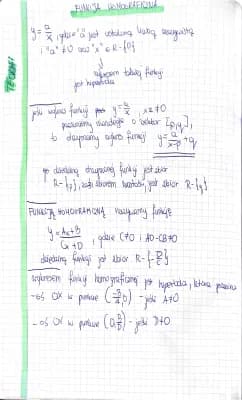 FUNKCJA HOMOGRAFICZNA
TEORIA
y = a/x, gdzie "a" jest ustaloną liczbą rzeczywistą
i "a" ≠ 0 oraz "x" ∈ R-{0}
wykresem takiej funkcji
jest hiperbola
jeśli wykres funkcji y = a/x, x≠0
przesuniemy równolegle o wektor [p,q],
to otrzymamy wykres funkcji y = a/x-p + q
dziedziną otrzymanej funkcji jest zbiór
R-{p}, zaś zbiorem wartości jest zbiór R-{q}
FUNKCJĄ HOMOGRAFICZNĄ nazywamy funkcję
y = Ax+B/Cx+D, gdzie C≠0 i AD-CB≠0
dziedziną funkcji jest zbiór R-{-D/C}
wykresem funkcji homograficznej jest hiperbola, która przecina
-oś OX w punkcie (-B/A,0) - jeśli A≠0
-oś OX w punkcie (0,B/D) - jeśli D≠0